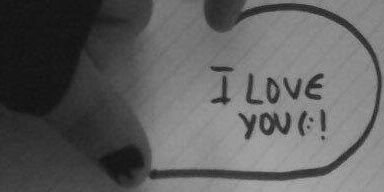 I LOVE
YOU(:!